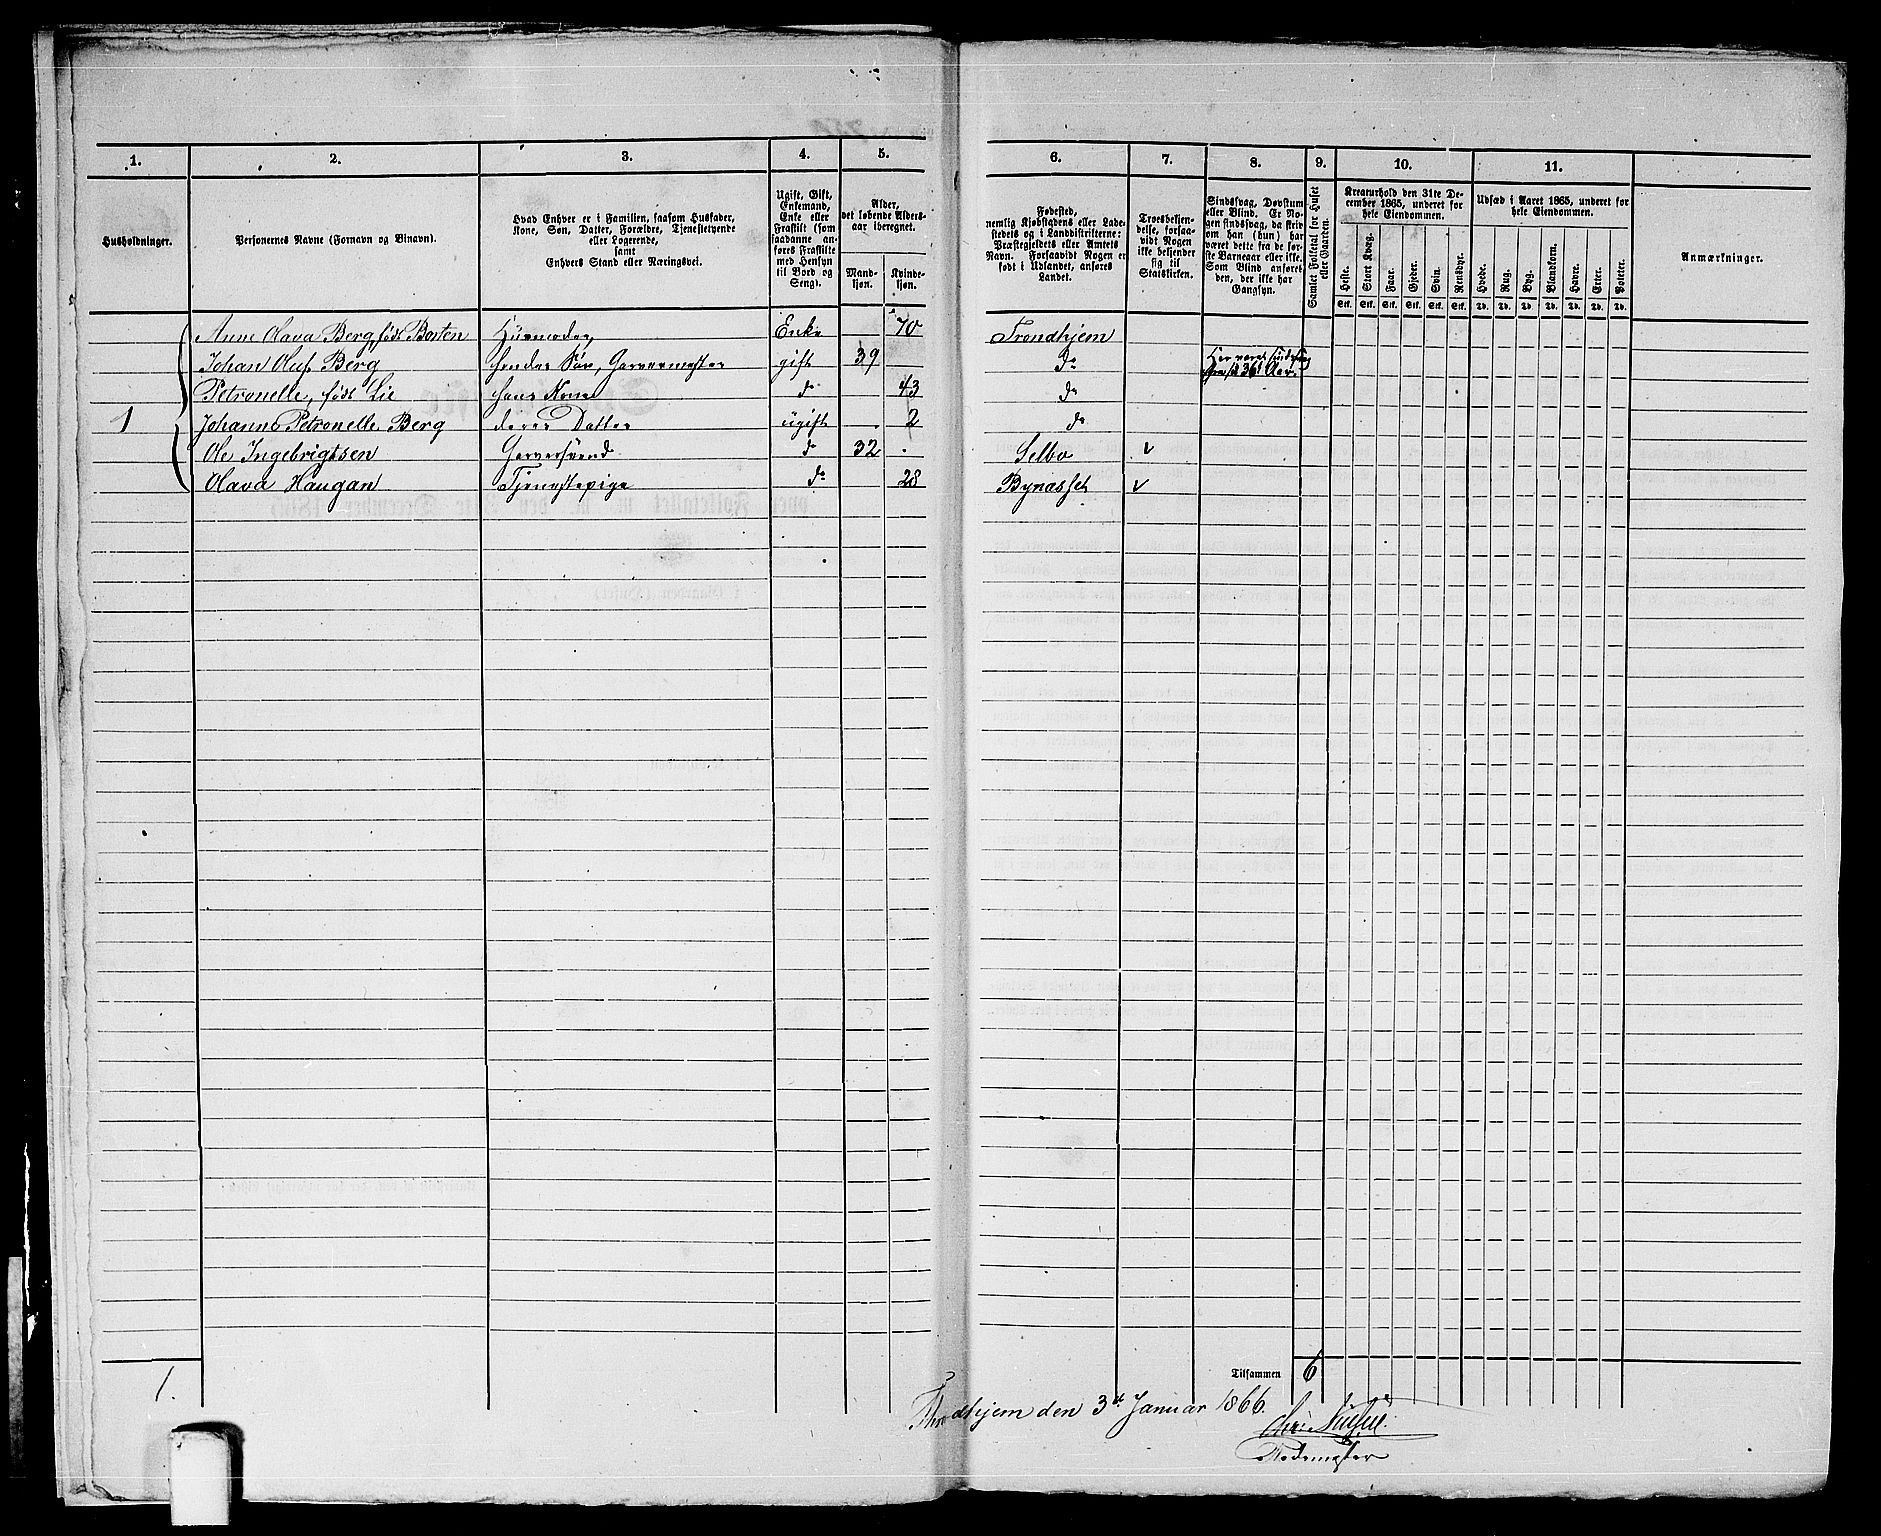 1. 2. 3. 4. 5. 6. 7. 8. 9. 10. 11.
Husholdninger.
Personernes Navne (Fornavn og Tilnavn).
Hvad Enhver er i Familien, saasom Husfader,
Kone, Søn, Datter, Forældre, Tjenestetyende
eller Logerende,
samt
Enhvers Stand eller Næringsvei.
Ugift, Gift,
Enkemand,
Enke eller
Fraskilt (som
saadanne an-
føres Fraskilte
med Hensyn
til Bord og
Seng).
Alder,
det løbende Alders-
aar iberegnet.
Mand-
kjøn.
Kvinde-
kjøn.
Fødested,
nemlig Kjøbstadens eller Lade-
stedets og i Landdistrikterne:
Præstegjeldets eller Amtets
Navn. Forsaavidt Nogen er
født i Udlandet, anføres
Landet.
Troesbekjen-
delse, forsaa-
vidt Nogen
ikke bekjender
sig til
Statskirken.
Sindssvag, Døvstum
eller Blind. Er No-
gen sindssvag, da skriv
om han (hun) har
været dette fra de før-
ste Barneaar eller ikke.
Som Blind anføres
den, der ikke har
Gangsyn.
Samlet Folketal for Huset
eller Gaarden.
Kreaturhold den 31te De-
cember 1865, underet for
hele Eiendommen.
Heste. Stort Kvæg. Faar. Gjeder. Svin. Rensdyr.
Stk. Stk. Stk. Stk. Stk. Stk.
Udsæd i Aaret 1865, underet for
hele Eiendommen.
Hvede. Rug. Byg. Blandkorn. Havre. Erter. Poteter.
Td. Td. Td. Td. Td. Td. Td.
Anmærkninger.
Anne Olava Berg, født Bosten Huusmoder Enke 70 Trondhjem
Johan Oluf Berg hendes Søn, Garvermester gift 39 do Har været
36 Aar.
Petronelle, født Lie hans Kone do 43 do
1 Johanne Petronelle Berg deres Datter ugift 2 do
Ole Ingebrigtsen Garversvend do 32 Selbo v
Olava Haugan Tjenestepige do 28 Bynæsset v
Tilsammen 6
1.
Throndhjem den 3de Januar 1866
Rodemester